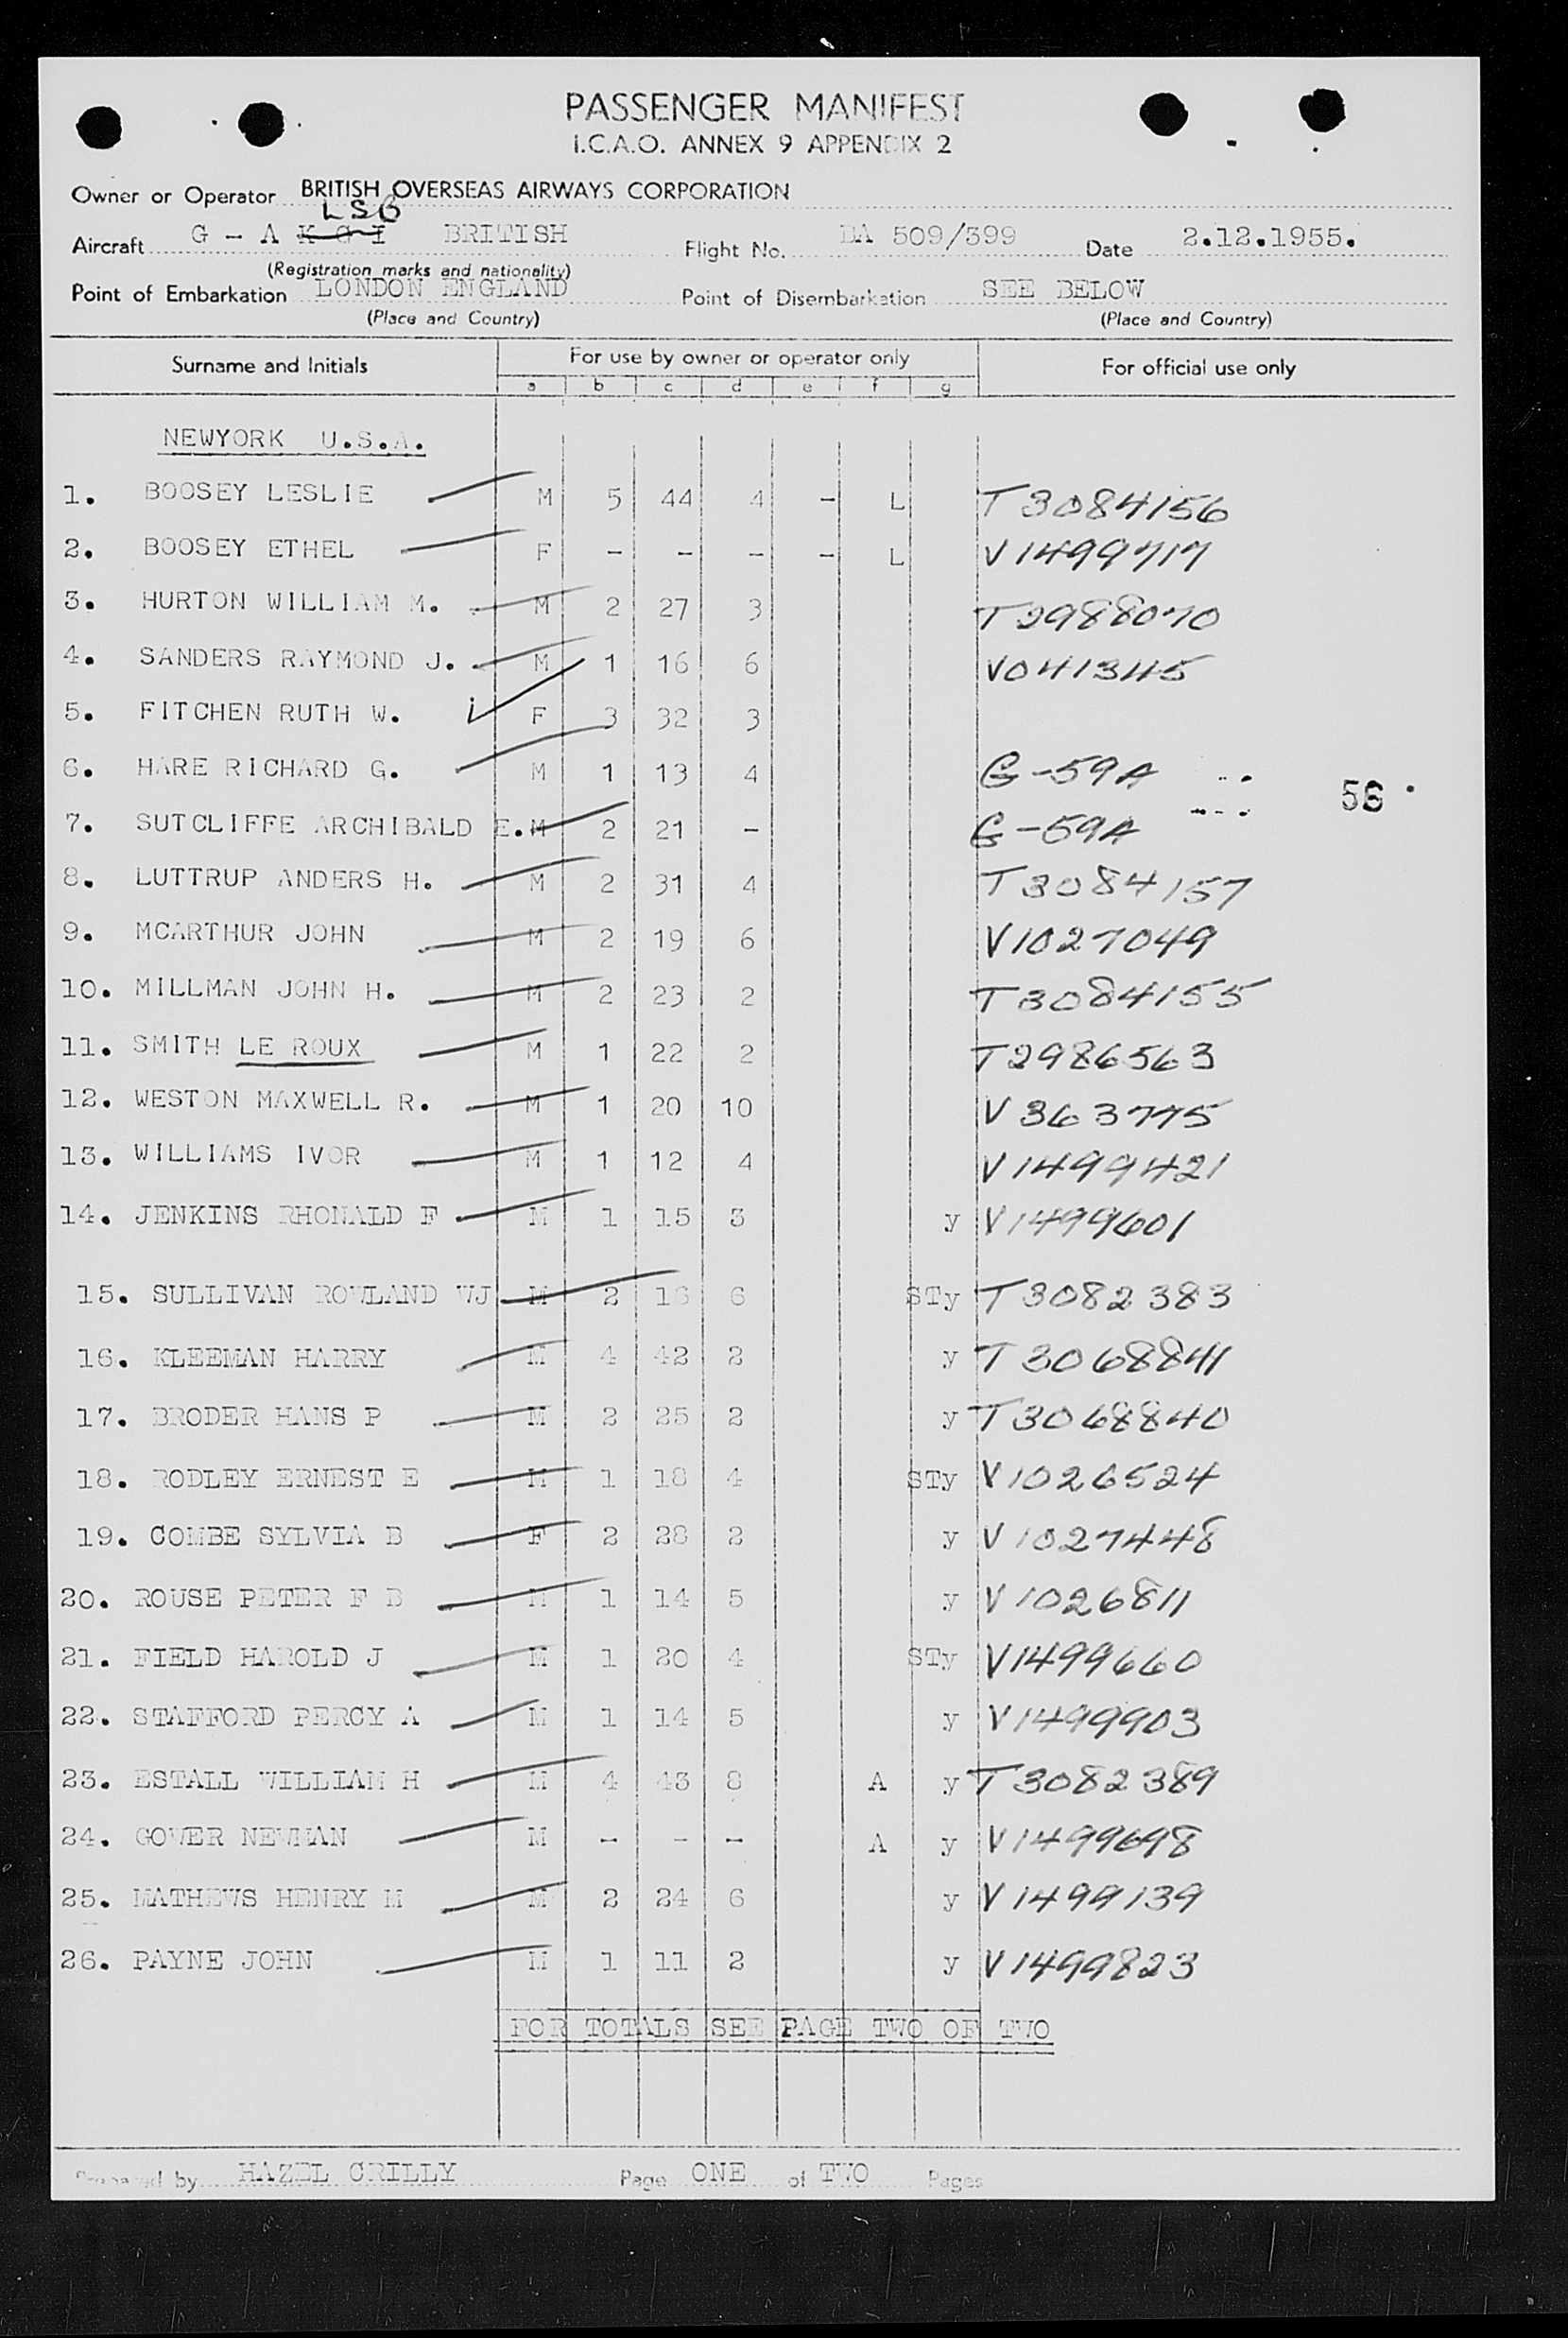 PASSENGER MANIFEST
I.C.A.O. ANNEX 9 APPENDIX 2
Owner or Operator BRITISH OVERSEAS AIRWAYS CORPORATION
LSB
Aircraft G - A K G I BRITISH Flight No. BA 509/399 Date 2.12.1955.
(Registration marks and nationality)
Point of Embarkation LONDON ENGLAND Point of Disembarkation SEE BELOW
(Place and Country) (Place and Country)
Surname and Initials For use by owner or operator only For official use only
a b c d e f g
NEWYORK U.S.A.
1. BOOSEY LESLIE M 5 44 4 - L T3084156
2. BOOSEY ETHEL F - - - - L V1499717
3. HURTON WILLIAM M. M 2 27 3 T2988070
4. SANDERS RAYMOND J. M 1 16 6 V041345
5. FITCHEN RUTH W. F 3 32 3
6. HARE RICHARD G. M 1 13 4 G-59A
56
7. SUTCLIFFE ARCHIBALD E. M 2 21 - G-59A
8. LUTTRUP ANDERS H. M 2 31 4 T3084157
9. MCARTHUR JOHN M 2 19 6 V1027049
10. MILLMAN JOHN H. M 2 23 2 T3084155
11. SMITH LE ROUX M 1 22 2 T2986563
12. WESTON MAXWELL R. M 1 20 10 V363775
13. WILLIAMS IVOR M 1 12 4 V1499421
14. JENKINS RHONALD F M 1 15 3 y V1499601
15. SULLIVAN ROWLAND WJ M 2 16 6 STy T3082383
16. KLEEMAN HARRY M 4 42 2 y T3068841
17. BRODER HANS P M 2 25 2 y T3068840
18. RODLEY ERNEST E M 1 18 4 STy V1026524
19. COMBE SYLVIA B F 2 28 2 y V1027448
20. ROUSE PETER F B M 1 14 5 y V1026811
21. FIELD HAROLD J M 1 20 4 STy V1499660
22. STAFFORD PERCY A M 1 14 5 y V1499903
23. ESTALL WILLIAM H M 4 43 8 A y T3082389
24. GOWER NEWMAN M - - - A y V1499698
25. MATHEWS HENRY M M 2 24 6 y V1499139
26. PAYNE JOHN M 1 11 2 y V1499823
FOR TOTALS SEE PAGE TWO OF TWO
Prepared by HAZEL CRILLY Page ONE of TWO Pages